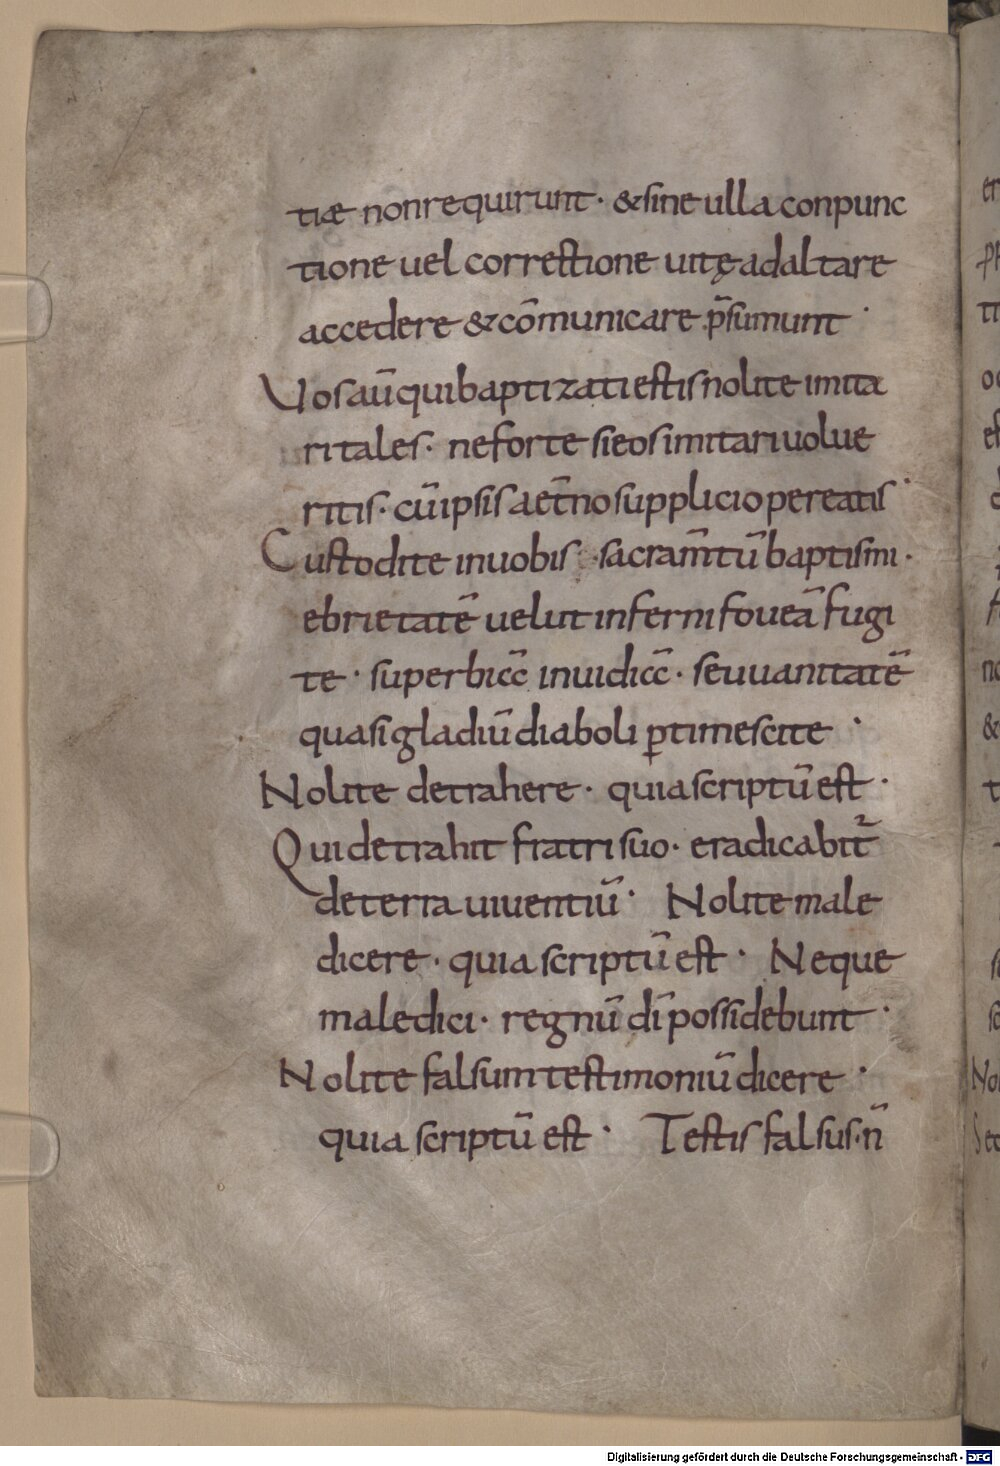 tiæ non requirunt · & sine ulla conpunc
tione uel correctione uitę ad altare
accedere & cōmunicare p̄sumunt ·
Uos aūt qui baptizati estis nolite imita
ri tales · ne forte si eos imitari uolue
ritis · cū ipsis aet̄no supplicio pereatis ·
Custodite in uobis · sacram̄tū baptismi ·
ebrietatē uelut inferni foueā fugi
te · superbiā inuidiā · seu uanitatē
quasi gladiū diaboli ꝑtimescite ·
Nolite detrahere · quia scriptū est ·
Qui detrahit fratri suo · eradicabit̄
de terra uiuentiū · Nolite male
dicere · quia scriptū est · Neque
maledici · regnū dī possidebunt ·
Nolite falsum testimoniū dicere ·
quia scriptū est · Testis falsus · n̄
Digitalisierung gefördert durch die Deutsche Forschungsgemeinschaft - DFG